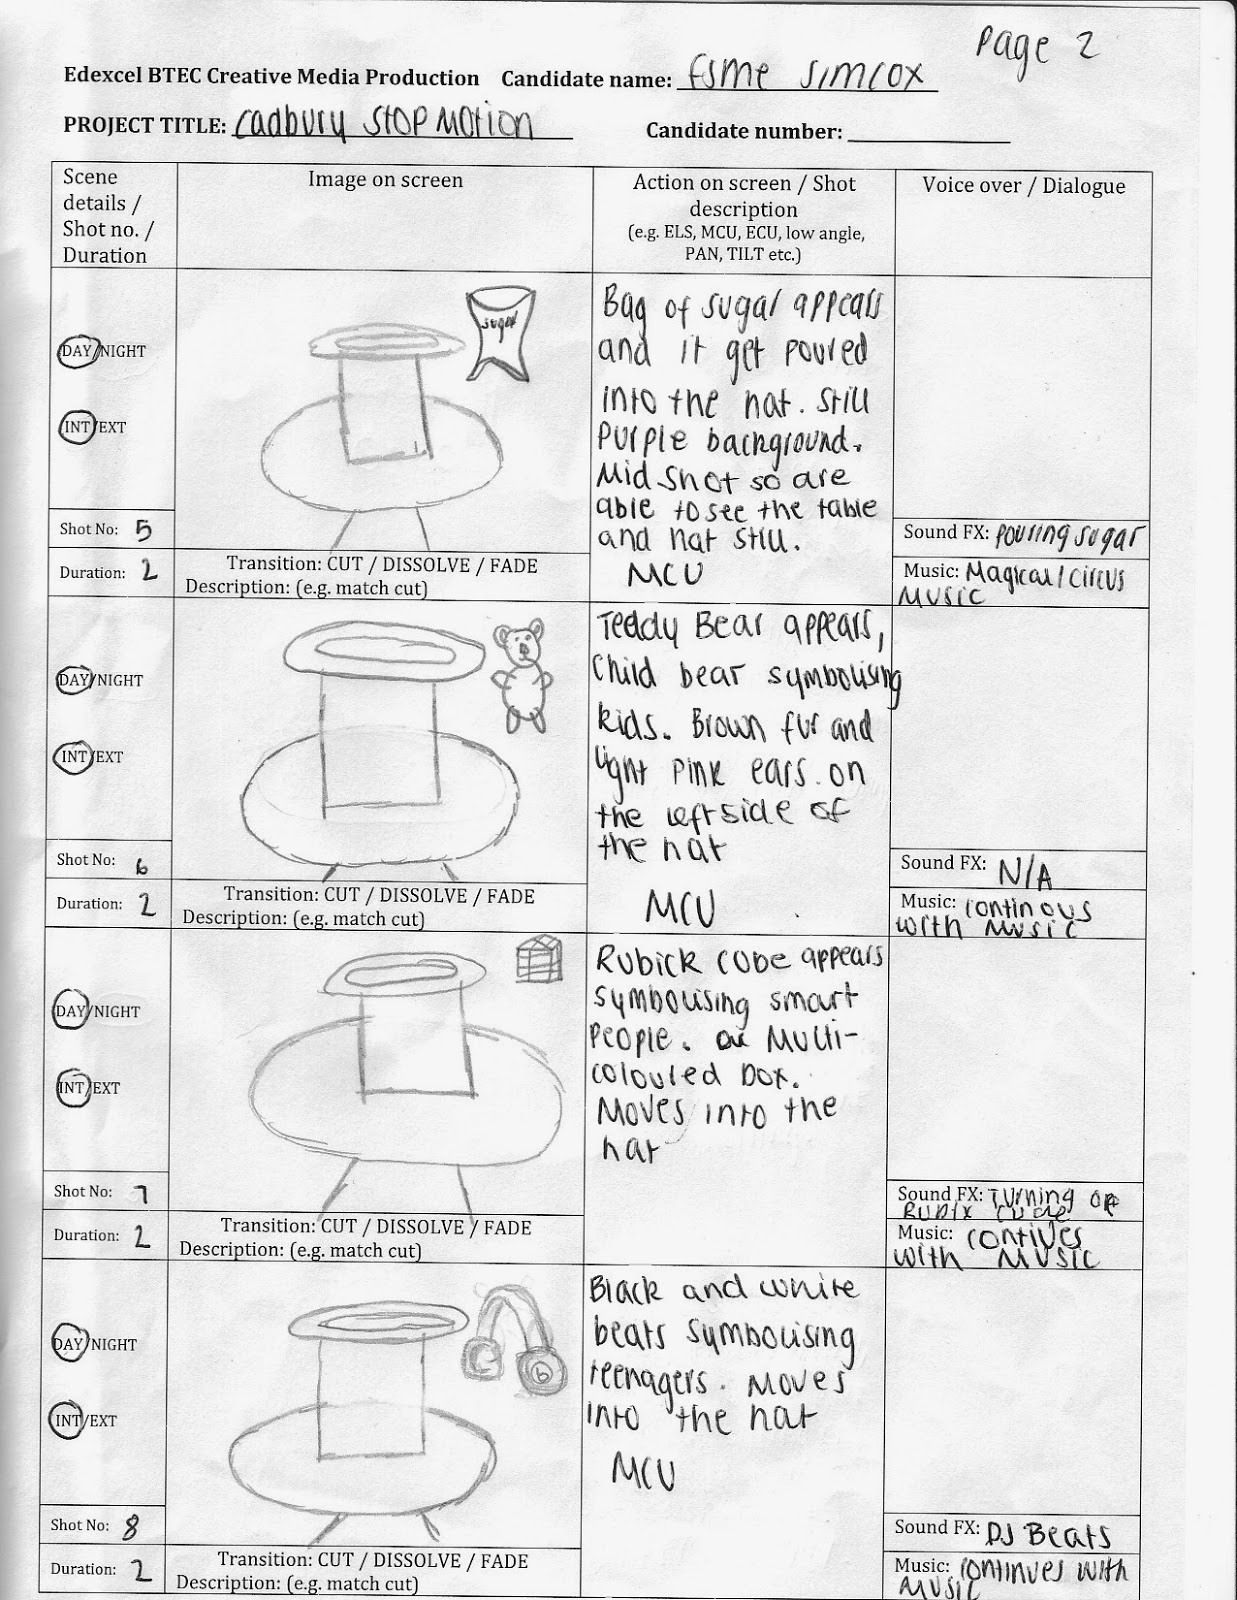 Page 2
Edexcel BTEC Creative Media Production Candidate name: Esme Simcox
PROJECT TITLE: Cadbury Stop Motion Candidate number:
Scene details / Shot no. / Duration
Image on screen
Action on screen / Shot description
(e.g. ELS, MCU, ECU, low angle, PAN, TILT etc.)
Voice over / Dialogue
DAY/NIGHT
INT/EXT
Shot No: 5
Duration: 2
sugar
Transition: CUT / DISSOLVE / FADE
Description: (e.g. match cut)
Bag of sugar appears
and it get poured
into the hat. Still
Purple background.
Mid shot so are
able to see the table
and hat still.
MCU
Sound FX: Pouring sugar
Music: Magical/Circus
Music
DAY/NIGHT
INT/EXT
Shot No: 6
Duration: 2
Transition: CUT / DISSOLVE / FADE
Description: (e.g. match cut)
Teddy Bear appears,
Child bear symbolising
kids. Brown fur and
light pink ears. on
the left side of
the hat
MCU
Sound FX: N/A
Music: continous
with Music
DAY/NIGHT
INT/EXT
Shot No: 7
Duration: 2
Transition: CUT / DISSOLVE / FADE
Description: (e.g. match cut)
Rubick cube appears
symbolising smart
People. Multi-
coloured box.
Moves into the
hat
Sound FX: Turning of
Rubix cube
Music: contives
with Music
DAY/NIGHT
INT/EXT
Shot No: 8
Duration: 2
b
Transition: CUT / DISSOLVE / FADE
Description: (e.g. match cut)
Black and white
beats symbolising
teenagers. Moves
into the hat
MCU
Sound FX: DJ Beats
Music: continues with
Music